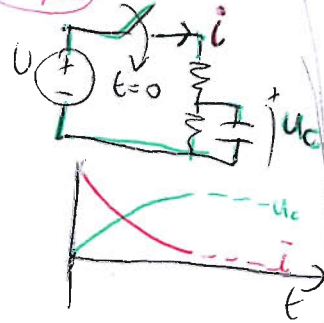 i
U
+
-
t=0
+
uc
uc
i
t